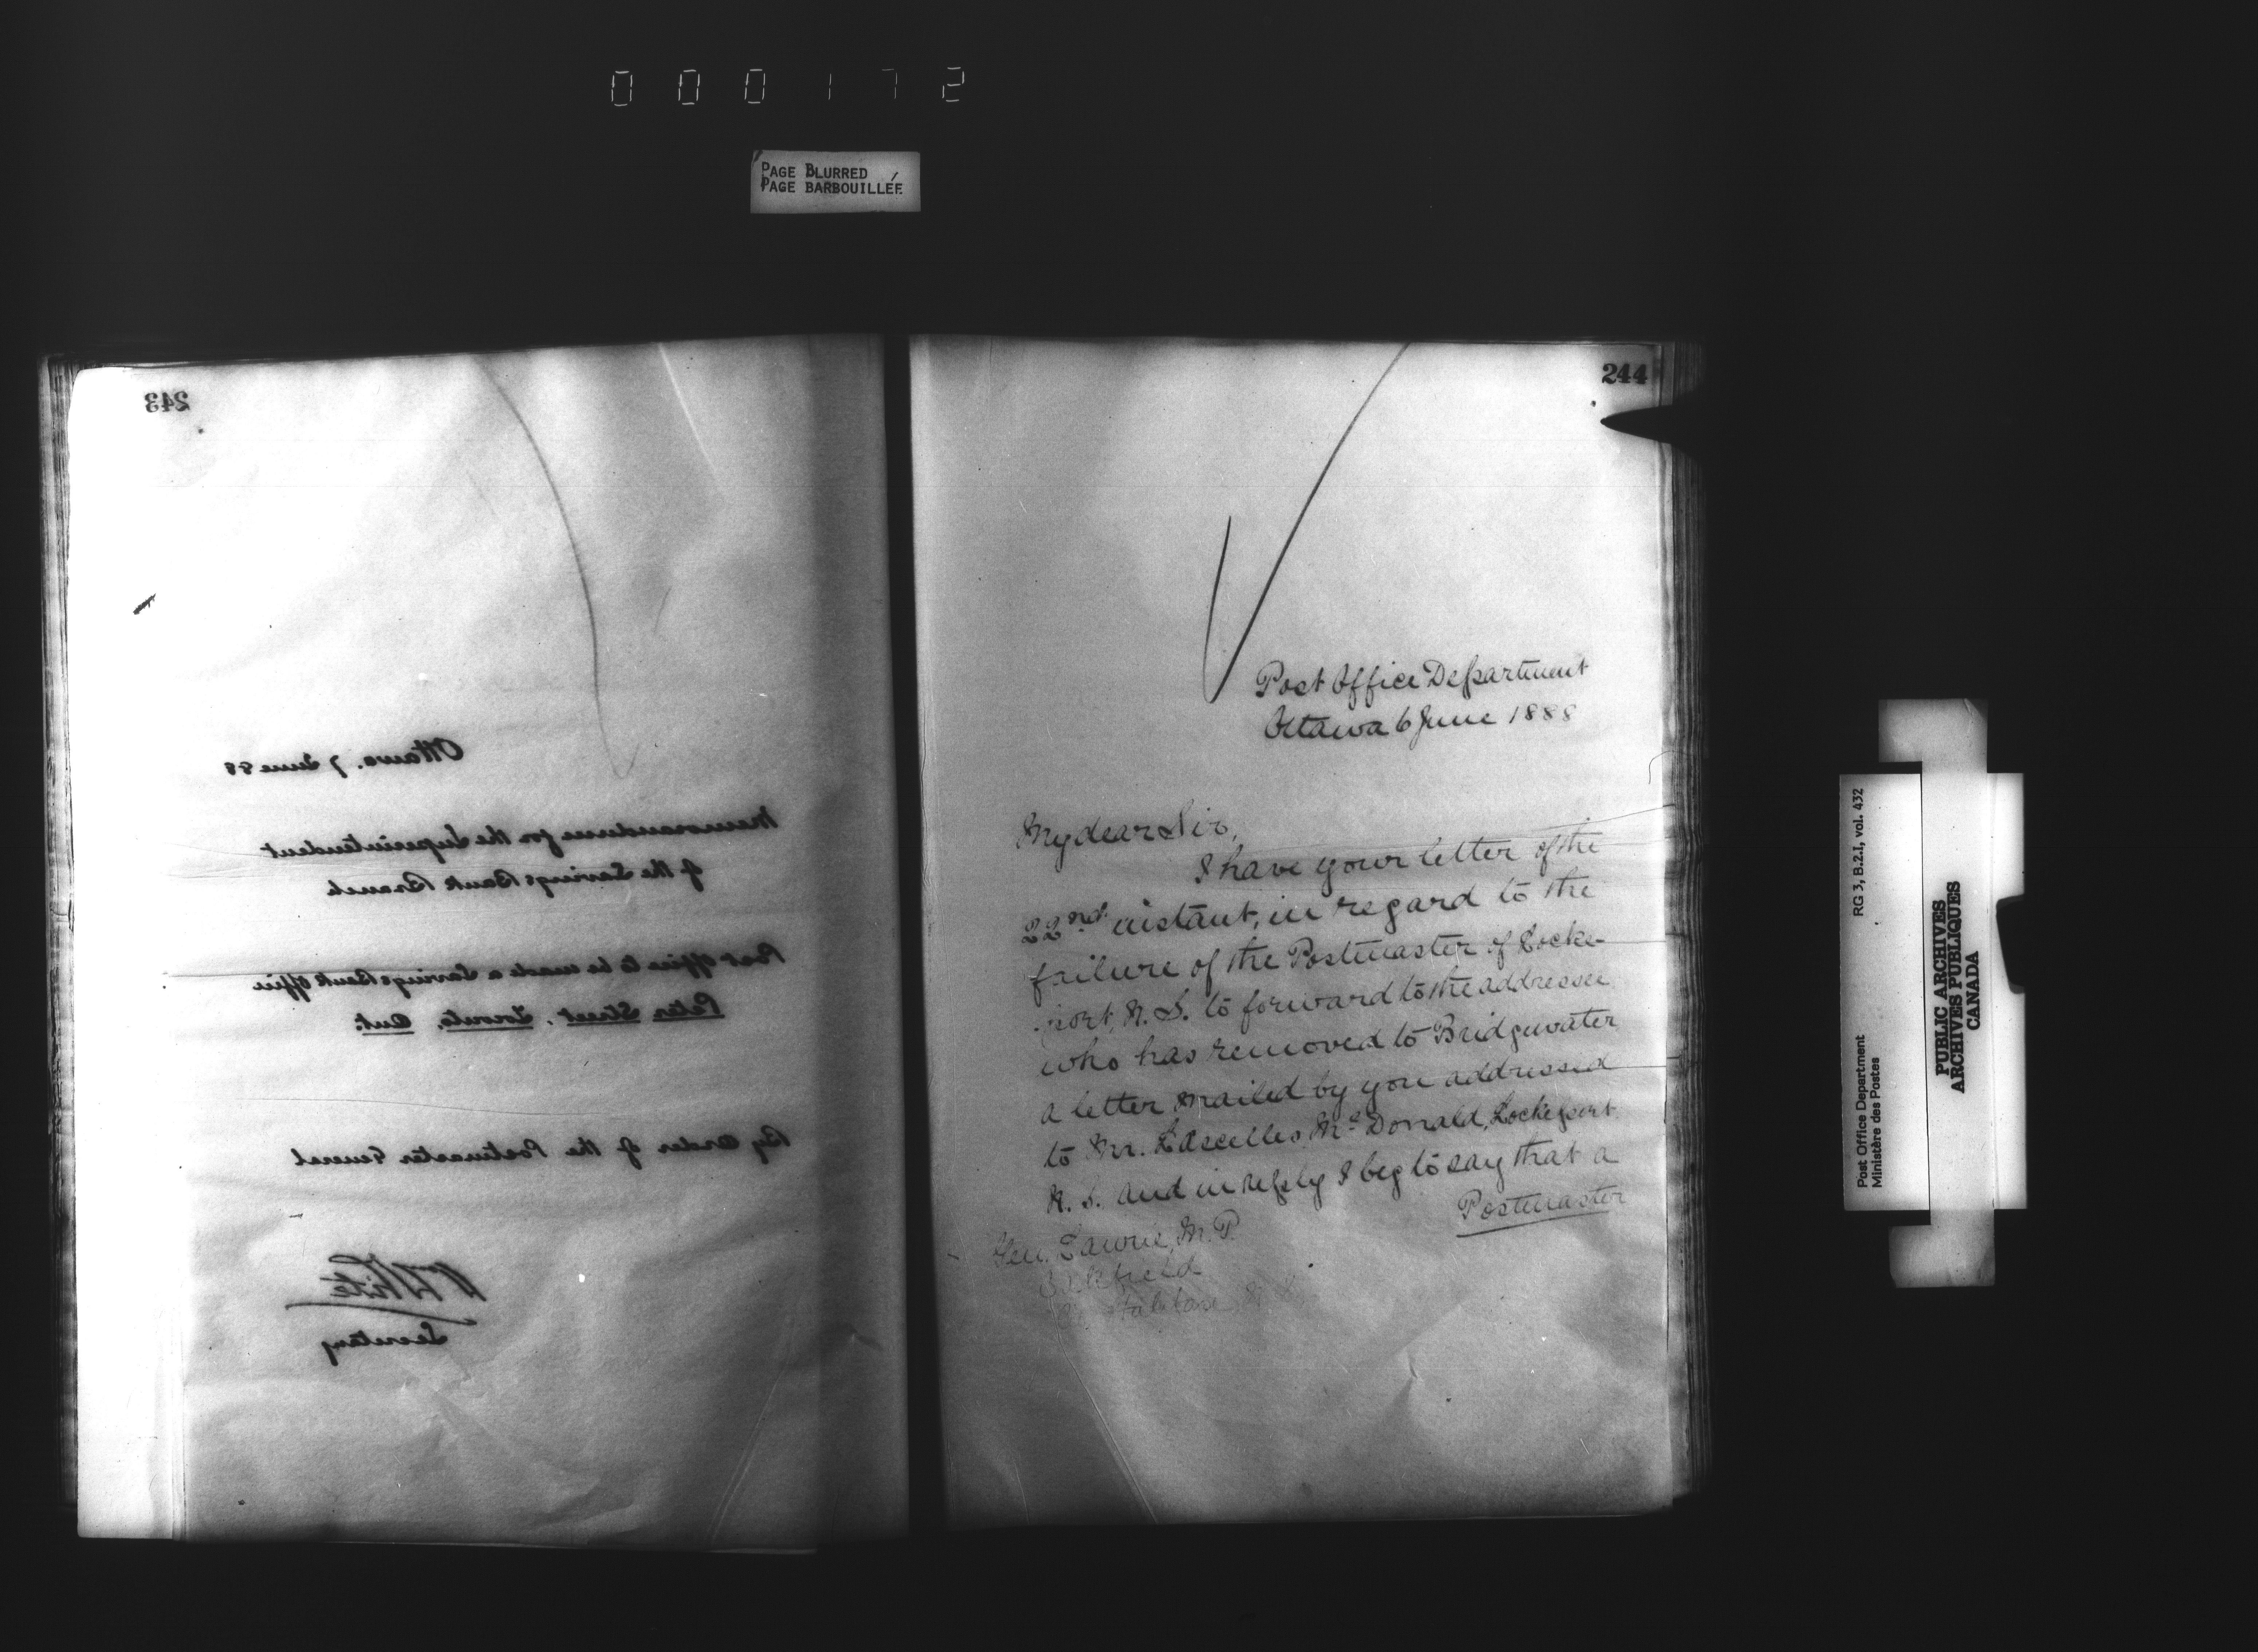 000172
PAGE BLURRED
PAGE BARBOUILLÉE
243
Ottawa. 7 June 88
Memorandum for the Superintendent
of the Savings Bank Branch
Post office to be made a Savings Bank office
Peter Street. Toronto. Ont.
By order of the Postmaster General
Wm White
Secretary
244
Post Office Department
Ottawa 6 June 1888
My dear Sir,
I have your letter of the
22nd instant, in regard to the
failure of the Postmaster of Locke-
port, N. S. to forward to the addressee
who has removed to Bridgewater
a letter mailed by you addressed
to Mr. Lascelles McDonald, Lockeport
N. S. and in reply I beg to say that a
Postmaster
Gen. Laurie, M. P.
Oakfield
Halifax N. S.
RG 3, B.2.I, vol. 432
Post Office Department
Ministère des Postes
PUBLIC ARCHIVES
ARCHIVES PUBLIQUES
CANADA